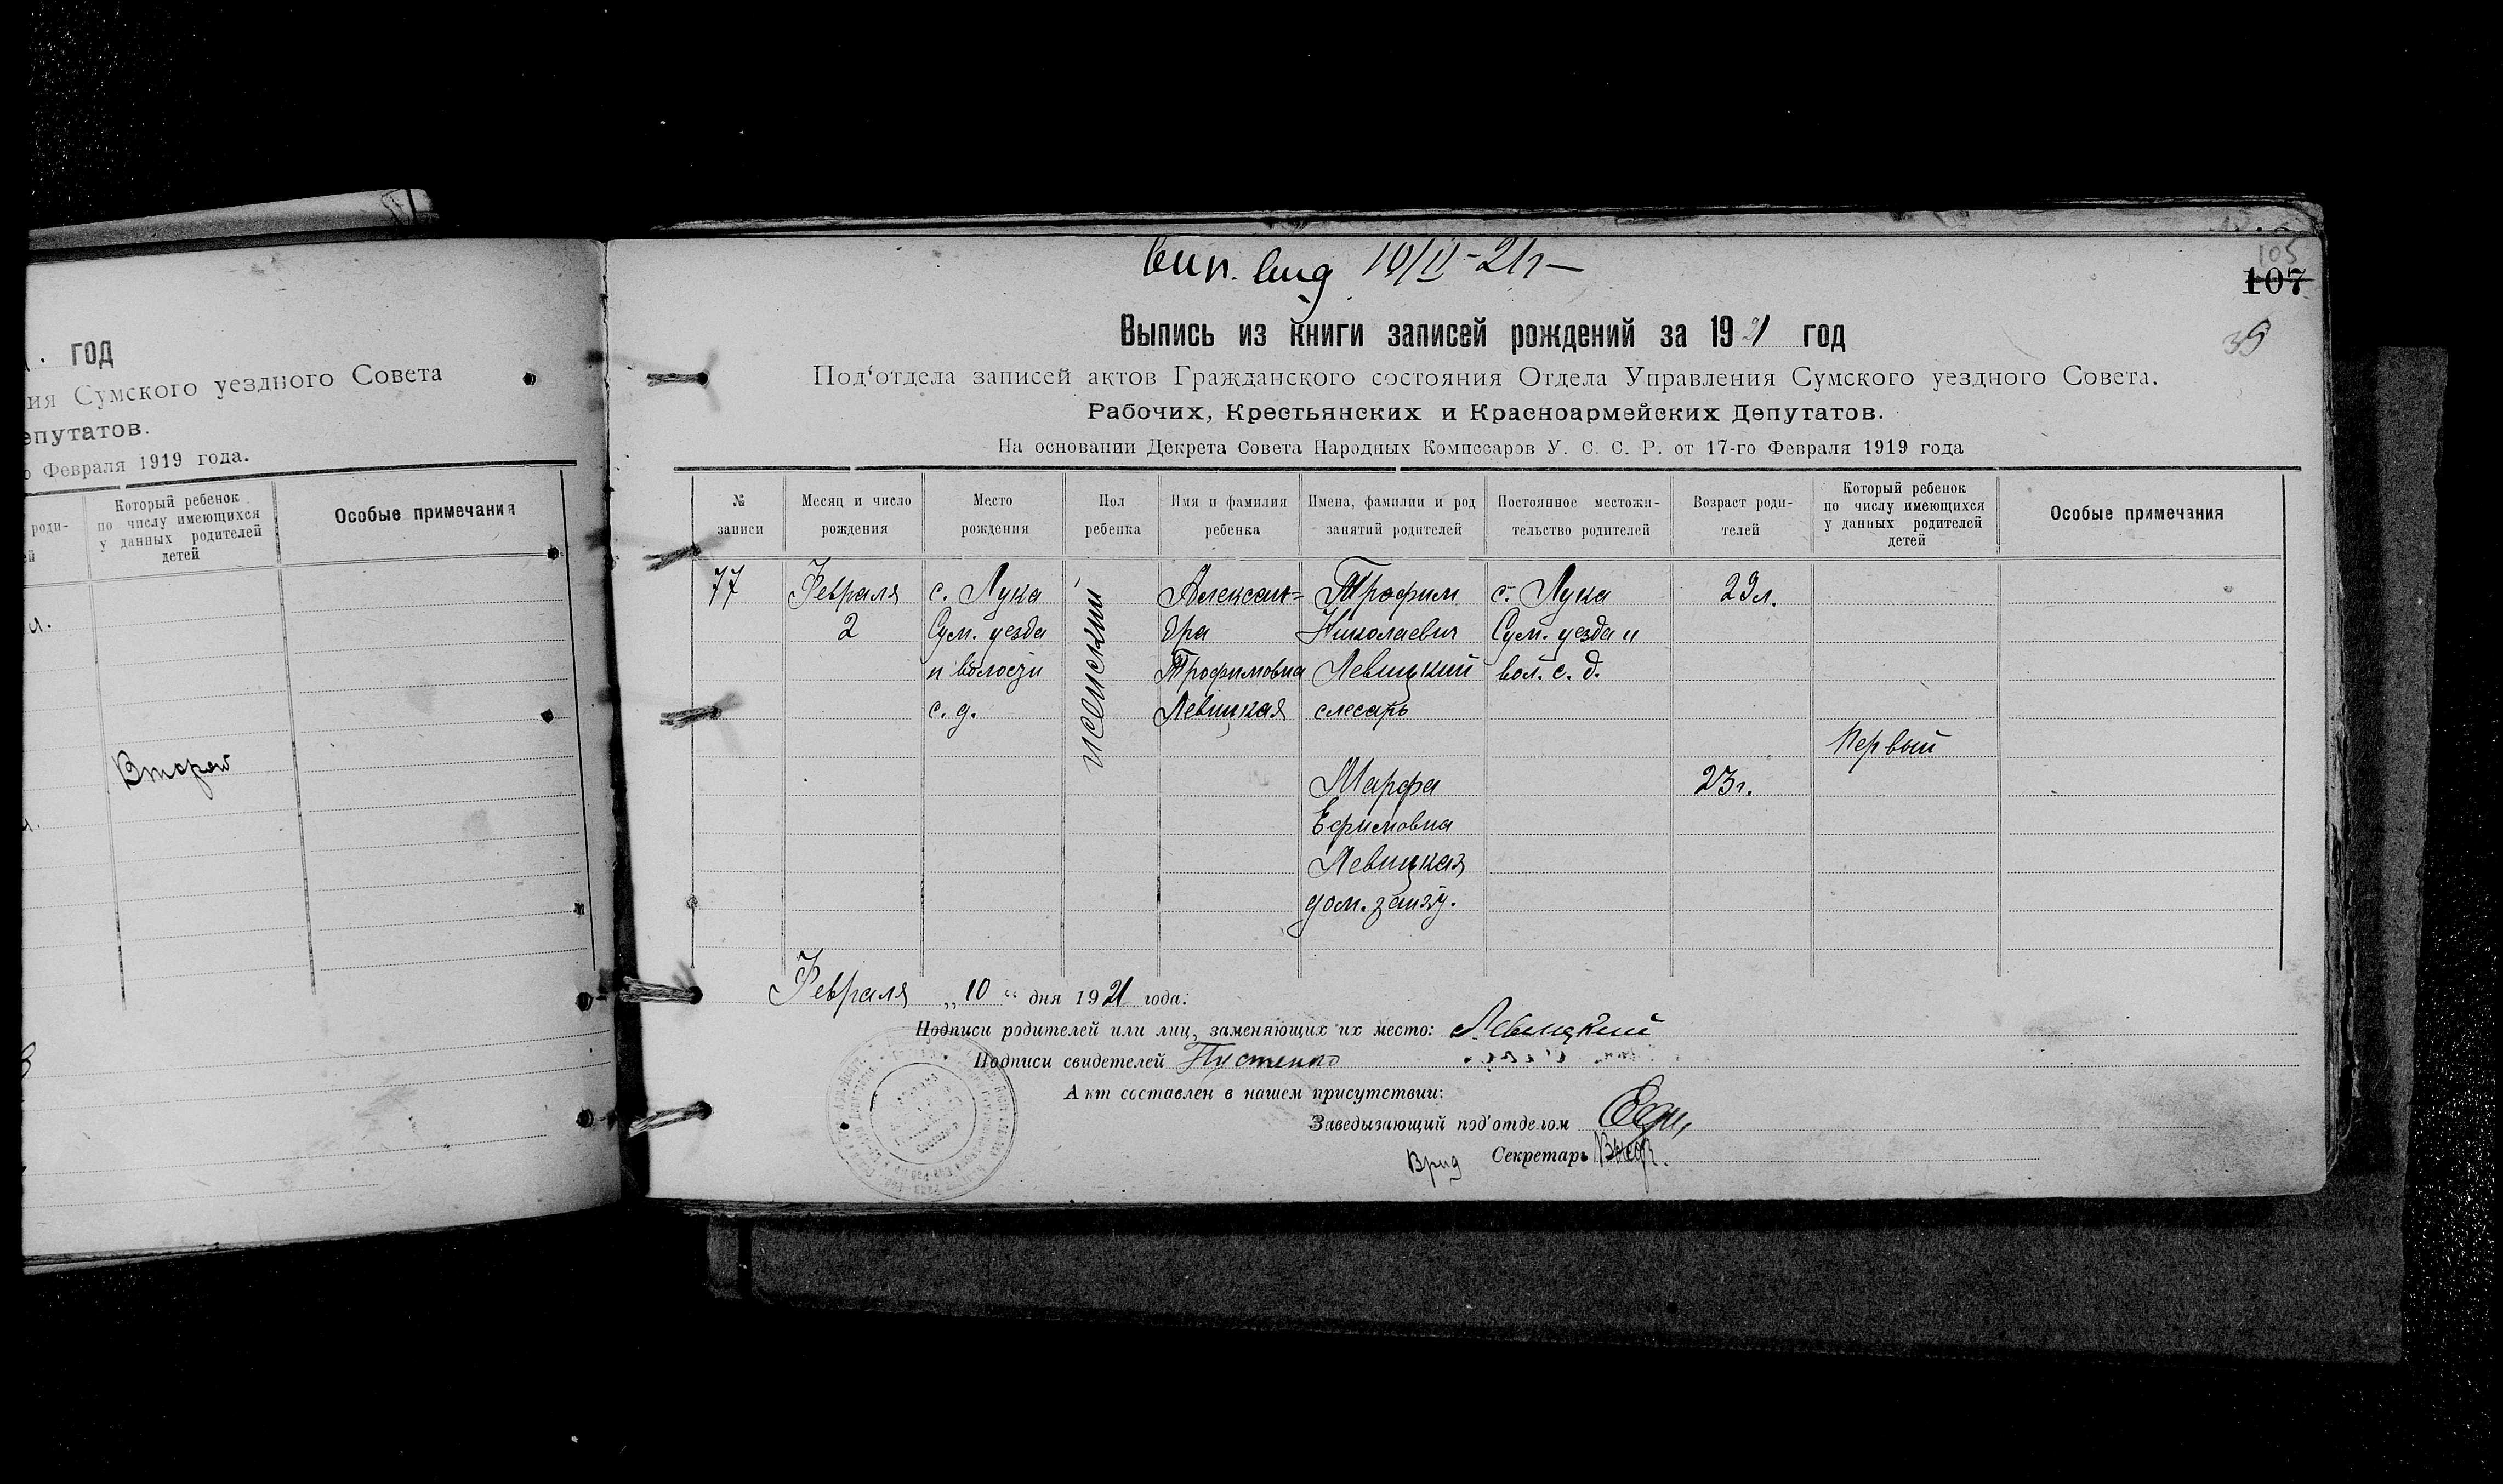 . год
ия Сумского уездного Совета
епутатов.
о Февраля 1919 года.
роди-
ей
Который ребенок
по числу имеющихся
у данных родителей
детей
Особые примечания
л.
Второй
вып. вид 10/II-21г-
105
107
39
Выпись из книги записей рождений за 1921 год
Под‘отдела записей актов Гражданского состояния Отдела Управления Сумского уездного Совета.
Рабочих, Крестьянских и Красноармейских Депутатов.
На основании Декрета Совета Народных Комиссаров У. С. С. Р. от 17-го Февраля 1919 года
№
записи
Месяц и число
рождения
Место
рождения
Пол
ребенка
Имя и фамилия
ребенка
Имена, фамилии и род
занятий родителей
Постоянное местожи-
тельство родителей
Возраст роди-
телей
Который ребенок
по числу имеющихся
у данных родителей
детей
Особые примечания
77
Февраля
2
с. Лука
Сум. уезда
и волости
с. д.
женский
Алексан=
дра
Трофимовна
Левицкая
Трофим
Николаевич
Левицкий
слесарь
Марфа
Ефимовна
Левицкая
дом. занят.
с. Лука
Сум. уезда и
вол. с. д.
29л.
23г.
Первый
Февраля „10“ дня 1921 года.
Подписи родителей или лиц, заменяющих их место: Левицкий
Подписи свидетелей
Акт составлен в нашем присутствии:
Заведывающий под'отделом
Врид Секретарь